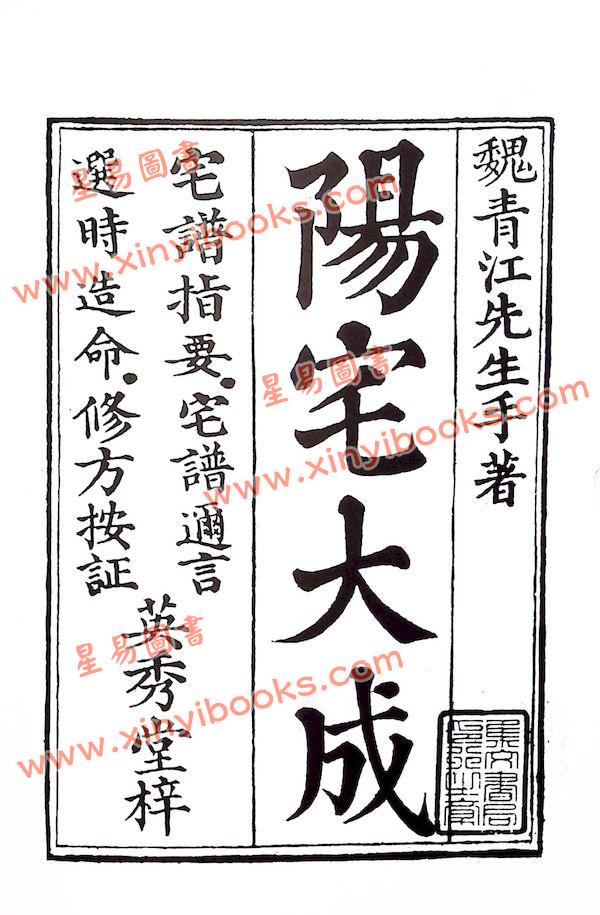 魏青江先生手著
陽宅大成
宅譜指要.宅譜邇言
選時造命.修方按証
英秀堂梓
集文書局
印行之章
星易圖書
www.xinyibooks.com
星易圖書
www.xinyibooks.com
星易圖書
www.xinyibooks.com